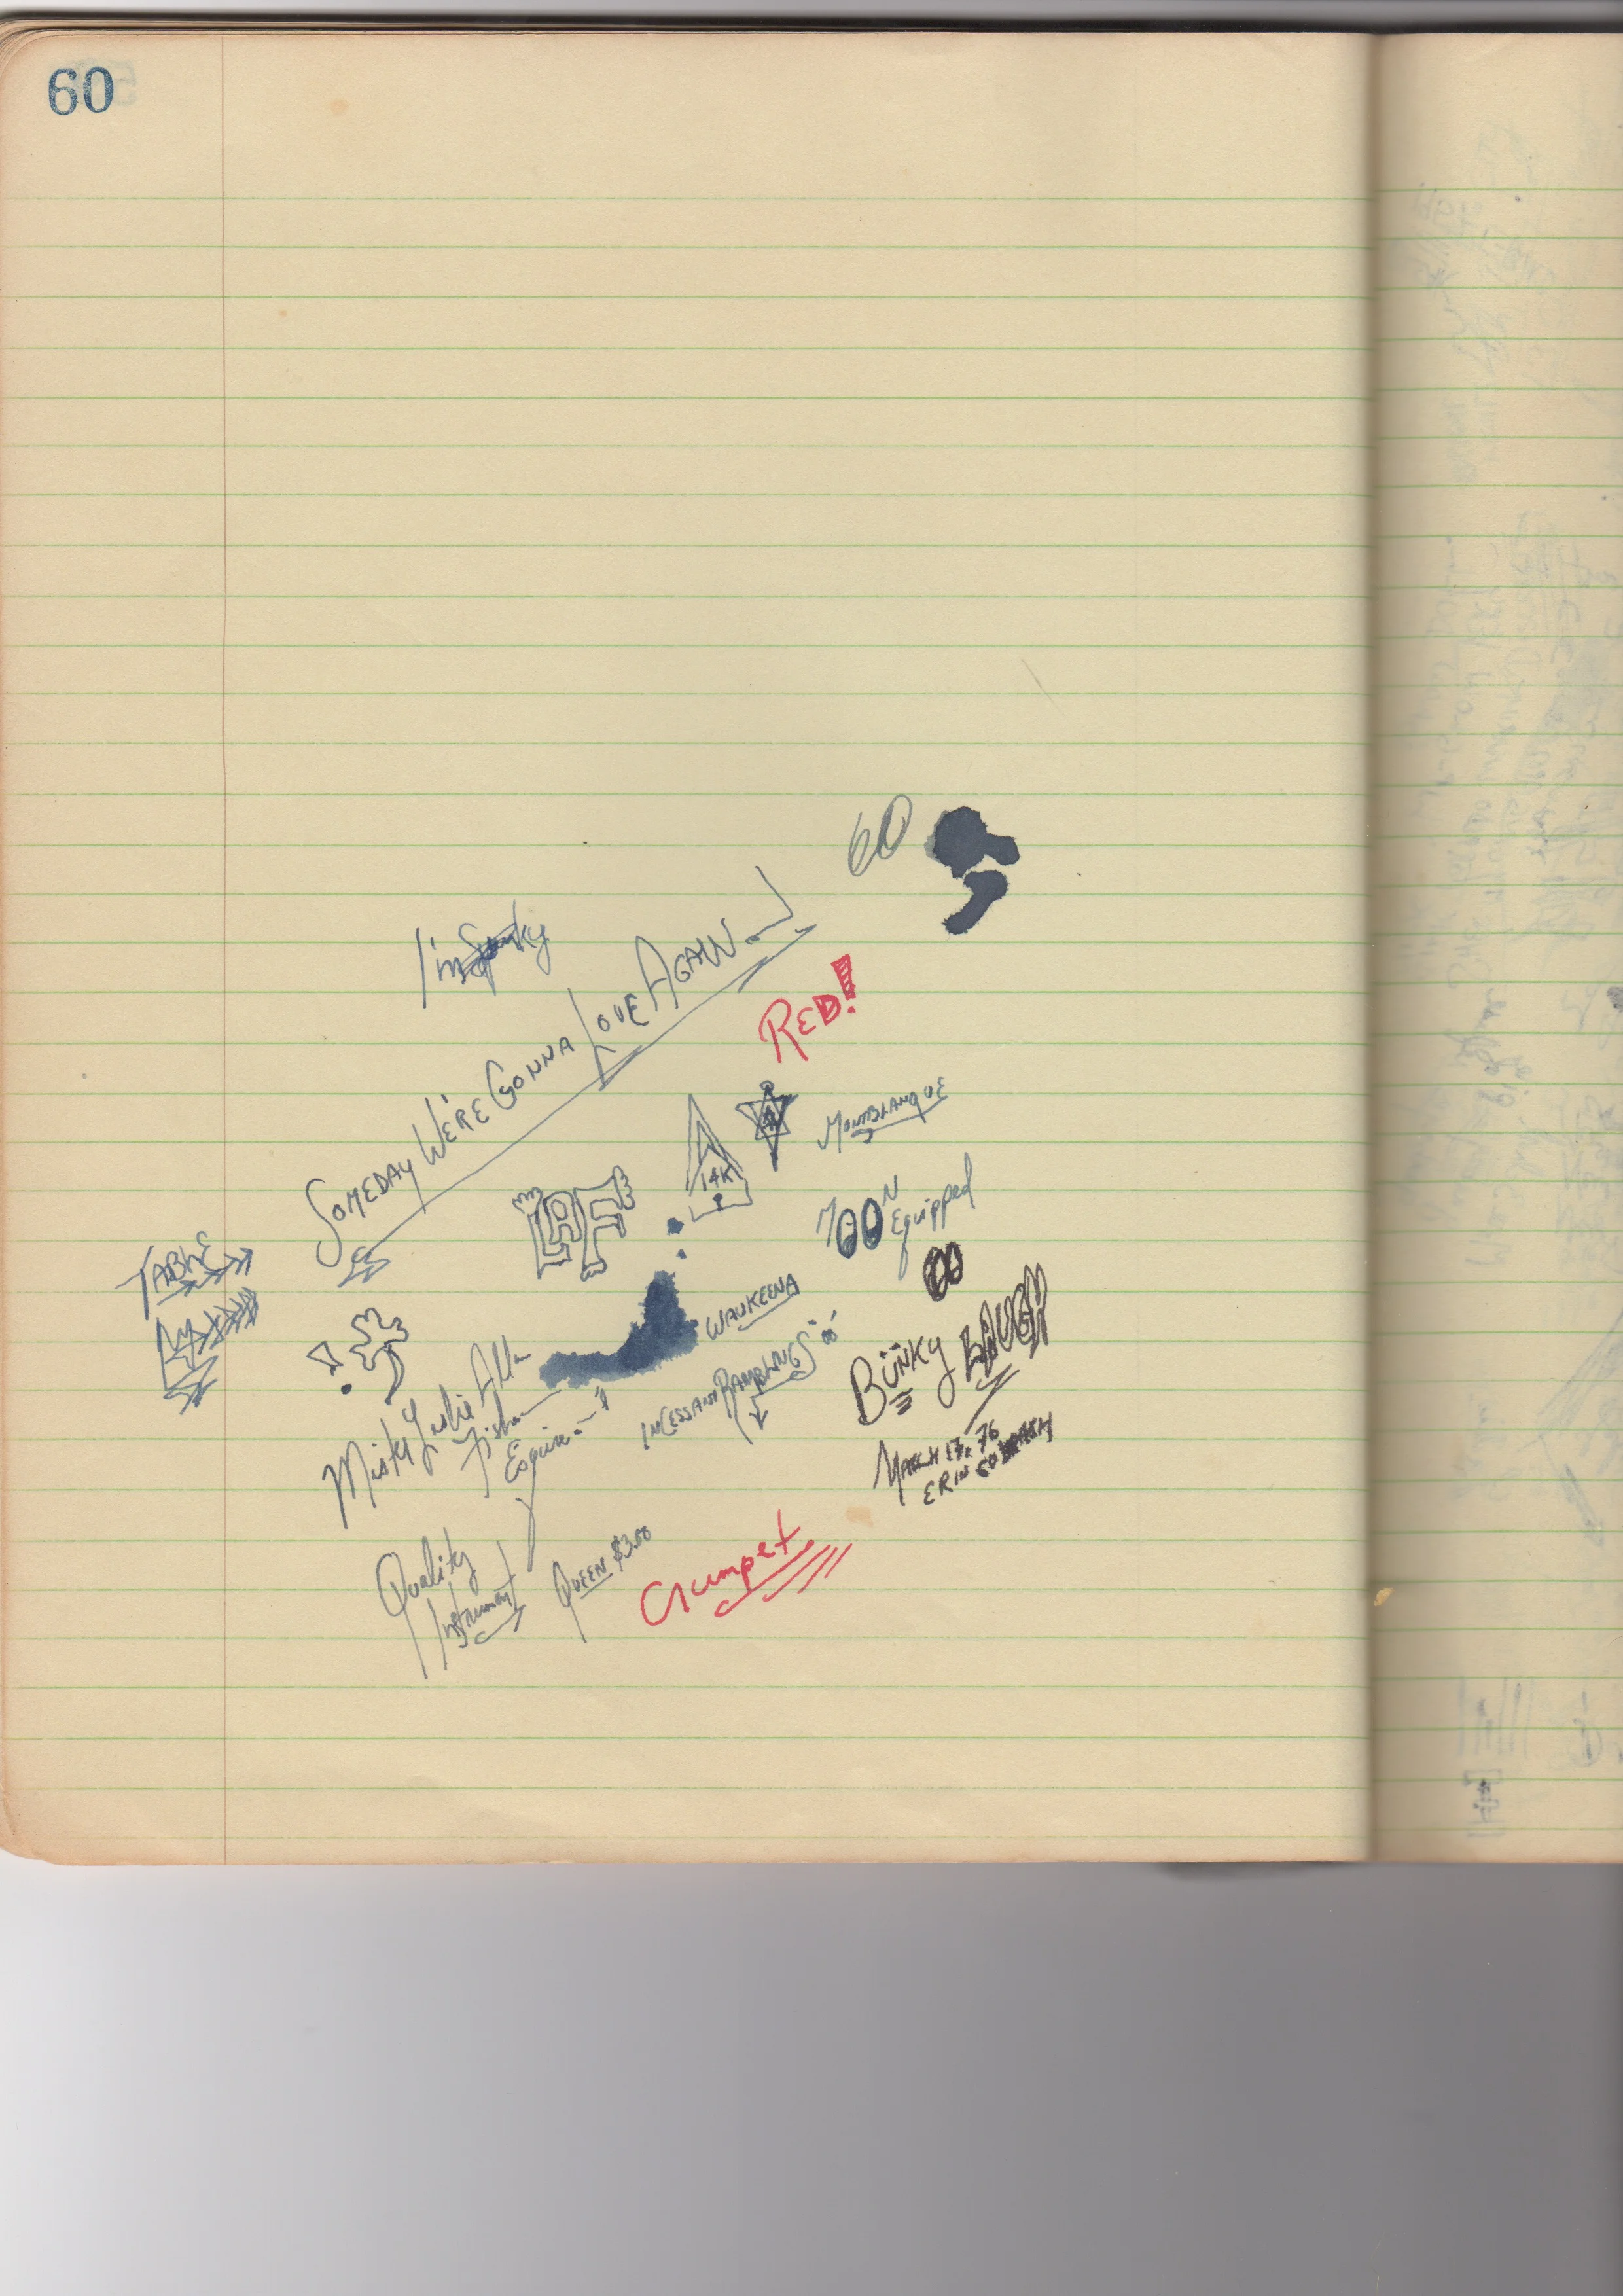 60
60
I'm Spunky
SOMEDAY WE'RE GONNA LOVE AGAIN
RED!
14K
MONTBLANQUE
LAF
MOON Equipped
TABLE
WAUKEENA
INCESSANT RAMBLINGS
BUNKY
Misty Leslie Allan
Fisher
Esquire
MARCH 17, 76
ERIN GO
Quality
Instrument
QUEEN $3.00
Crumpet